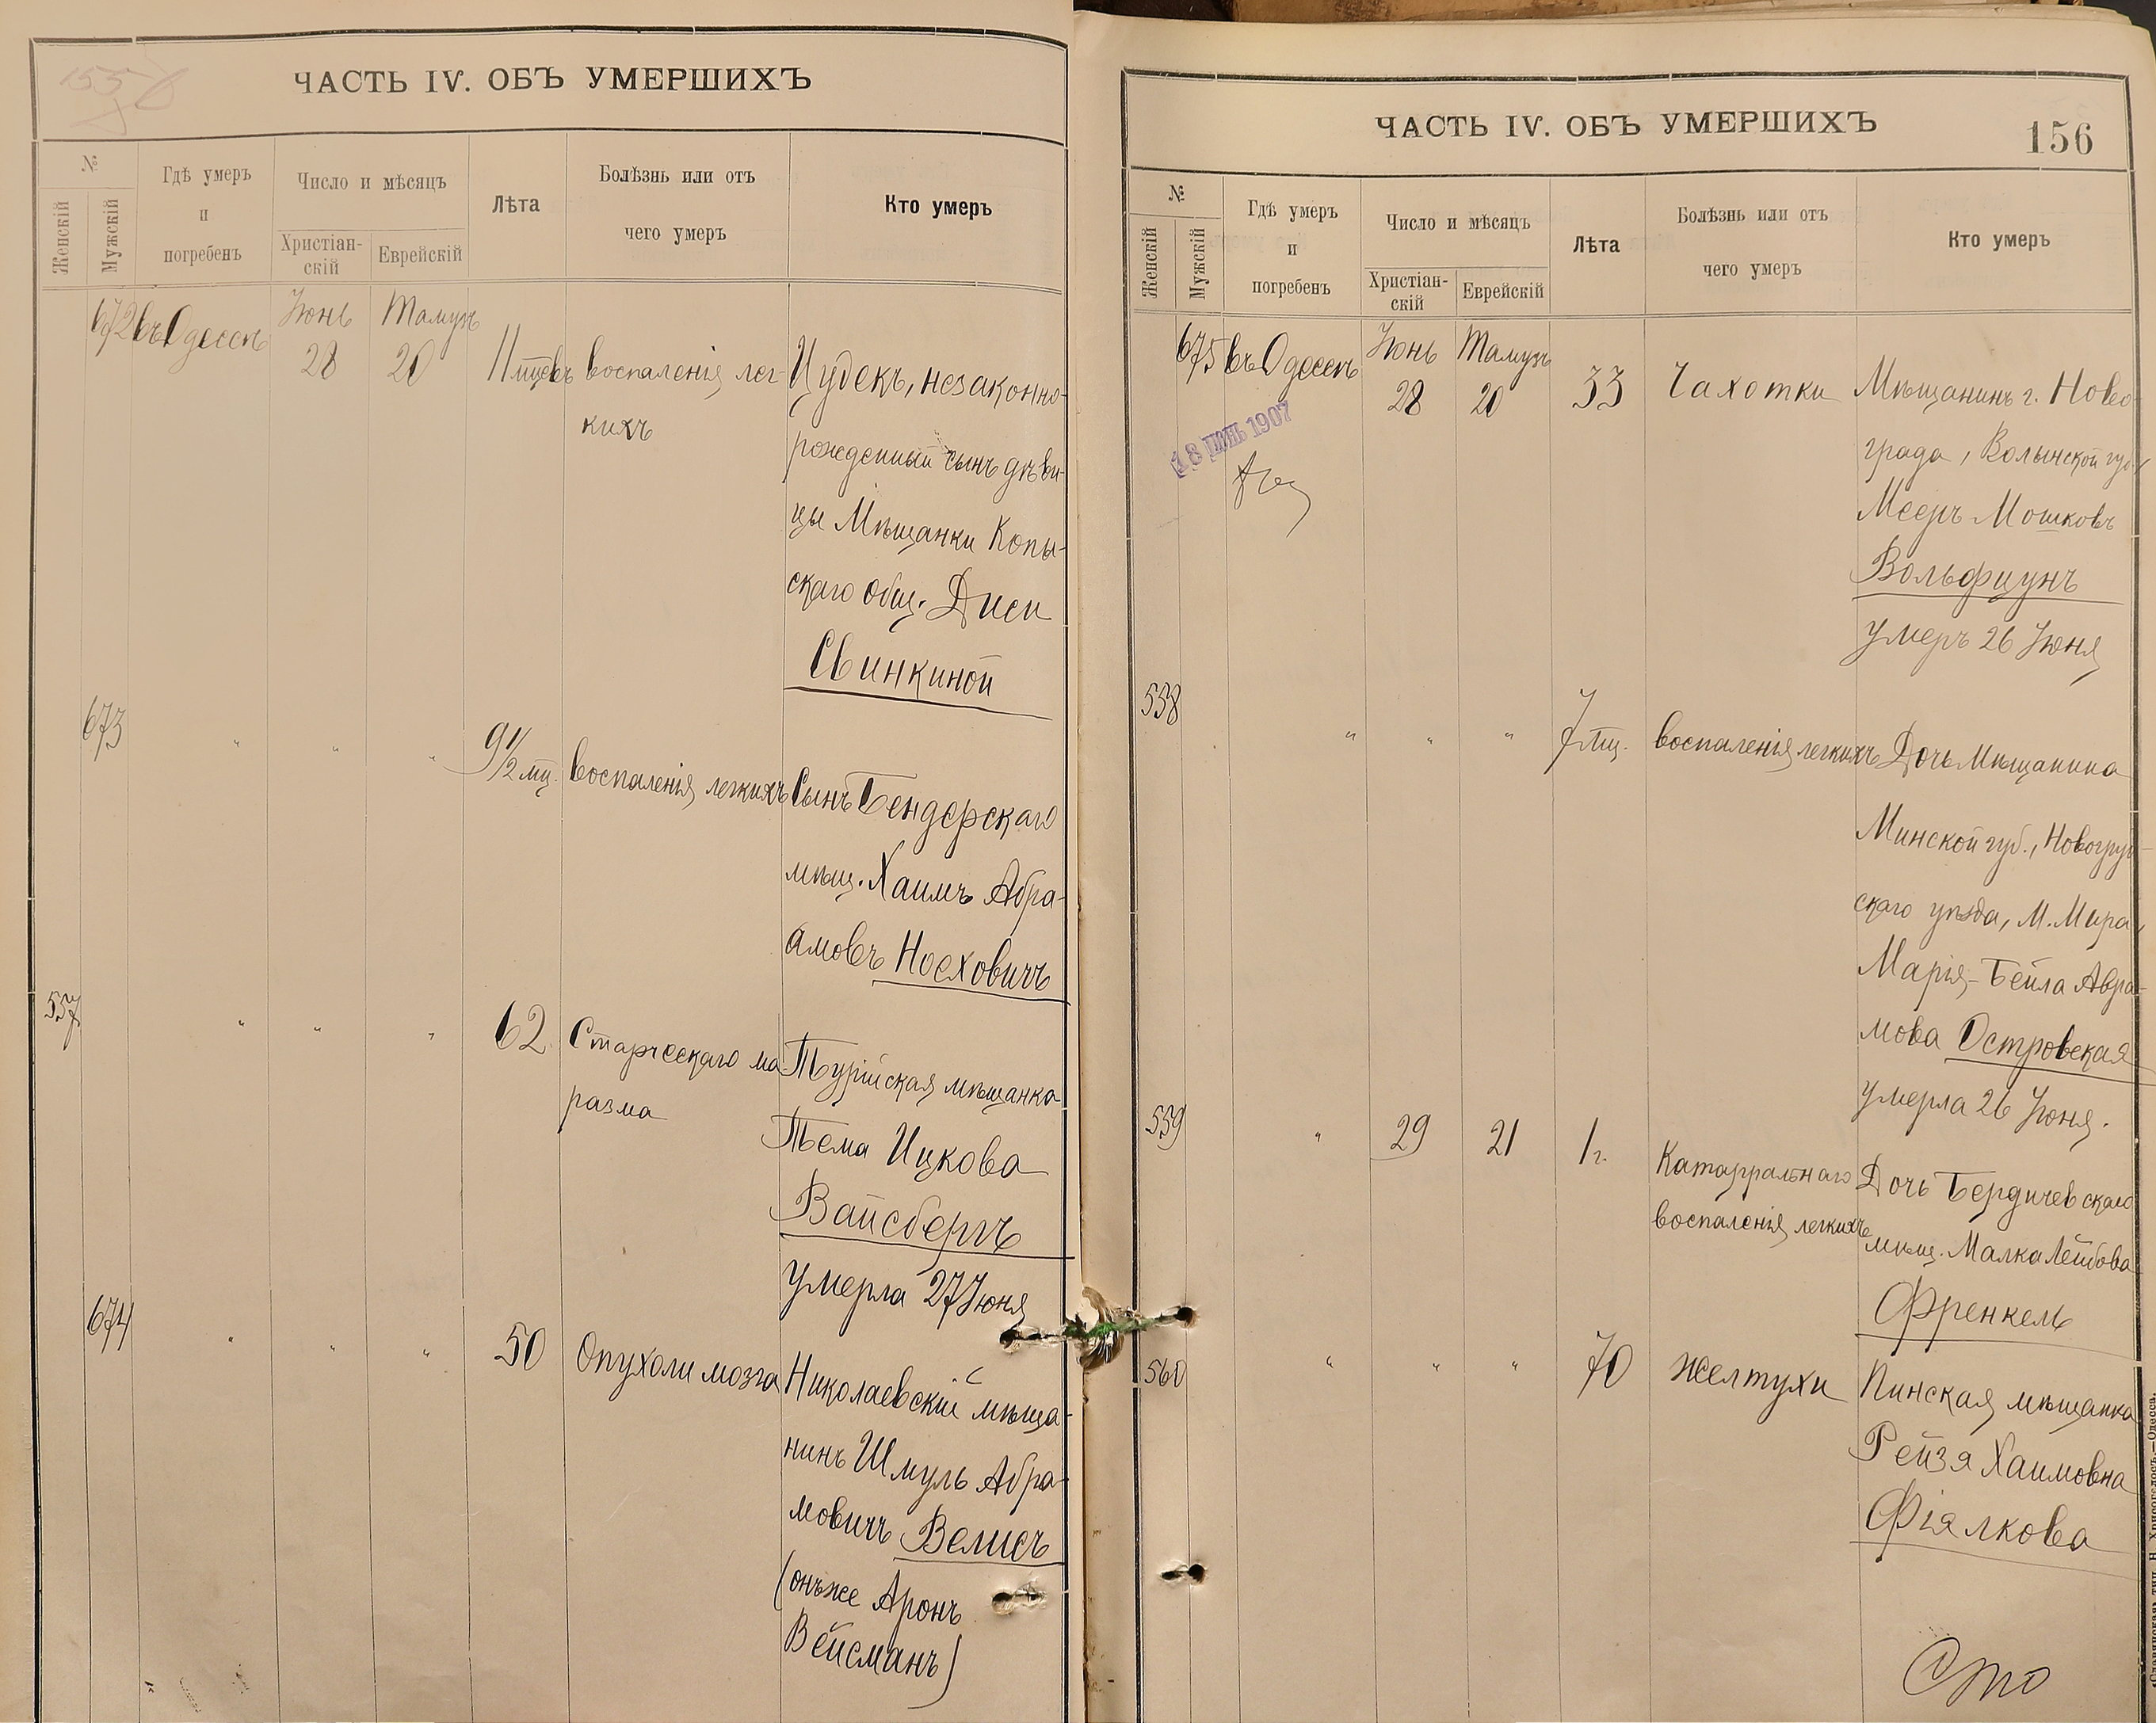 ЧАСТЬ IV. ОБЪ УМЕРШИХЪ
№
Женскій
Мужскій
Гдѣ умеръ
и
погребенъ
Число и мѣсяцъ
Христіан-
скій
Еврейскій
Лѣта
Болѣзнь или отъ
чего умеръ
Кто умеръ
672 въ Одессѣ Іюнь 28 Тамузъ 20 11 мцевъ воспаленія лег-
кихъ
Цудекъ, незаконно-
рожденный сынъ дѣви-
цы Мѣщанки Копы-
скаго общ. Диси
Свинкиной
673 " " " 9 1/2 мц. воспаленія легкихъ Сынъ Бендерскаго
мѣщ. Хаимъ Абра-
амовъ Носховичъ
557 " " " 62 Старческаго ма-
разма
Турійская мѣщанка
Тема Ицкова
Вайсбергъ
умерла 27 Іюня
674 " " " 50 Опухоли мозга Николаевскій мѣща-
нинъ Шмуль Абра-
мовичъ Велисъ
(онъ же Аронъ
Вейсманъ)
ЧАСТЬ IV. ОБЪ УМЕРШИХЪ
156
№
Женскій
Мужскій
Гдѣ умеръ
и
погребенъ
Число и мѣсяцъ
Христіан-
скій
Еврейскій
Лѣта
Болѣзнь или отъ
чего умеръ
Кто умеръ
675 въ Одессѣ Іюнь 28 Тамузъ 20 33 Чахотки Мѣщанинъ г. Ново-
града, Волынской губ.
Мееръ Мошковъ
Вольфцунъ
умеръ 26 Іюня
1907
558 " " " 7 мц. воспаленія легкихъ Дочь Мѣщанина
Минской губ., Новогруд-
скаго уѣзда, М. Мира,
Марія-Бейла Авра-
мова Островская
умерла 26 Іюня.
559 " 29 21 1 г. Катарральнаго
воспаленія легкихъ
Дочь Бердичевскаго
мѣщ. Малка Лейбова
Френкель
560 " " " 70 желтухи Пинская мѣщанка
Рейзя Хаимовна
Фіялкова
Сто